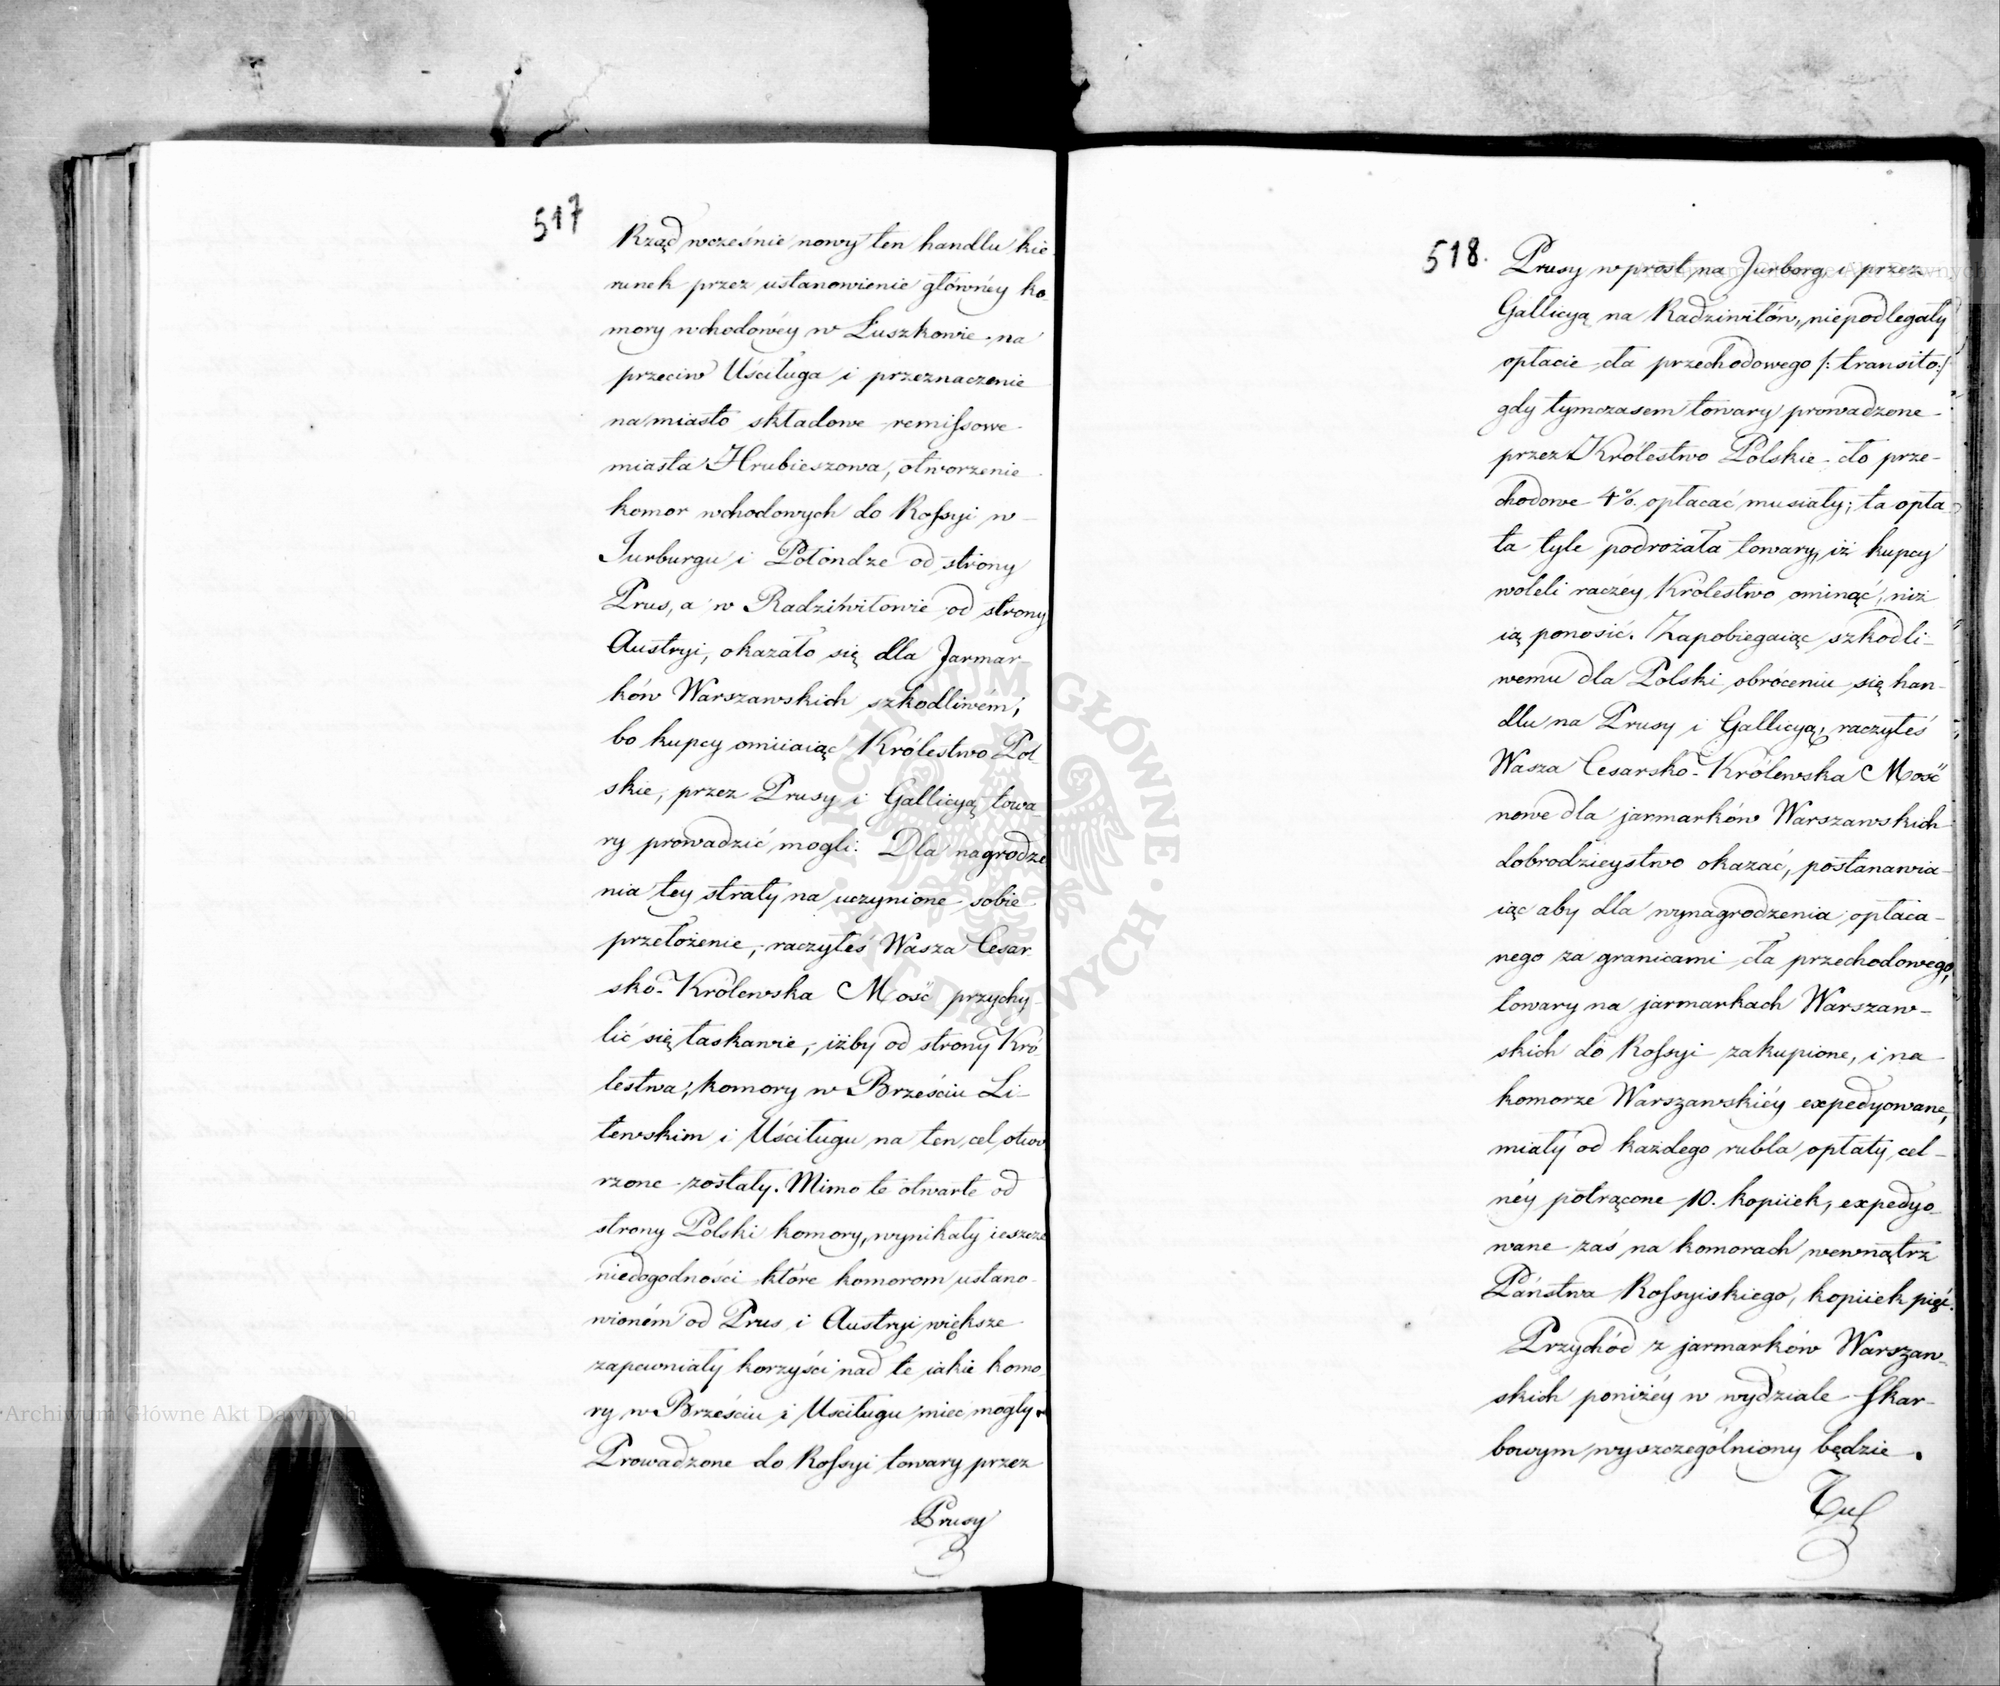 517
Rząd wcześnie nowy ten handlu kie-
runek przez ustanowienie główney ko-
mory wchodowéy w Łuszkowie na
przeciw Uściługa i przeznaczenie
na miasto składowe remissowe
miasta Hrubieszowa, otworzenie
komor wchodowych do Rossyi w
Jurburgu i Połondze od strony
Prus, a w Radziwiłowie od strony
Austryi, okazało się dla Jarmar-
ków Warszawskich szkodliwém;
bo kupcy omiiaiąc Królestwo Pol-
skie, przez Prusy i Gallicyą towa-
ry prowadzić mogli. Dla nagrodze
nia tey straty na uczynione sobie
przełożenie, raczyłeś Wasza Cesar-
sko-Królewska Mość przychy-
lić się łaskawie, iżby od strony Kró
lestwa, komory w Brześciu Li-
tewskim i Uściługu na ten cel otwo
rzone zostały. Mimo te otwarte od
strony Polski komory, wynikały ieszcze
niedogodności które komorom ustano-
wioném od Prus i Austryi większe
zapewniały korzyści nad te iakie komo-
ry w Brześciu i Usciługu mieć mogły.
Prowadzone do Rossyi towary przez
Prusy
518.
Prusy wprost na Jurborg, i przez
Gallicyą na Radziwiłów, niepodlegały
opłacie cła przechodowego /: transito:/
gdy tymczasem towary prowadzone
przez Królestwo Polskie cło prze-
chodowe 4%. opłacać musiały; ta opła
ta tyle podrożała towary, iż kupcy
woleli raczéy Królestwo ominąć, niż
ią ponosić. Zapobiegaiąc szkodli-
wemu dla Polski obróceniu się han-
dlu na Prusy i Gallicyą, raczyłeś
Wasza Cesarsko-Królewska Mość
nowe dla jarmarków Warszawskich
dobrodzieystwo okazać, postanawia-
iąc aby dla wynagrodzenia opłaca-
nego za granicami cła przechodowego,
towary na jarmarkach Warszaw-
skich do Rossyi zakupione, i na
komorze Warszawskiéy expedyowane,
miały od każdego rubla opłaty cel-
néy potrącone 10. kopiiek, expedyo-
wane zaś na komorach wewnątrz
Państwa Rossyiskiego, kopiiek pięć.
Przychód z jarmarków Warszaw-
skich poniżéy w wydziale Skar-
bowym wyszczególniony będzie.
Tu
ARCHIWUM GŁÓWNE · AKT DAWNYCH ·
Archiwum Główne Akt Dawnych
Archiwum Główne Akt Dawnych